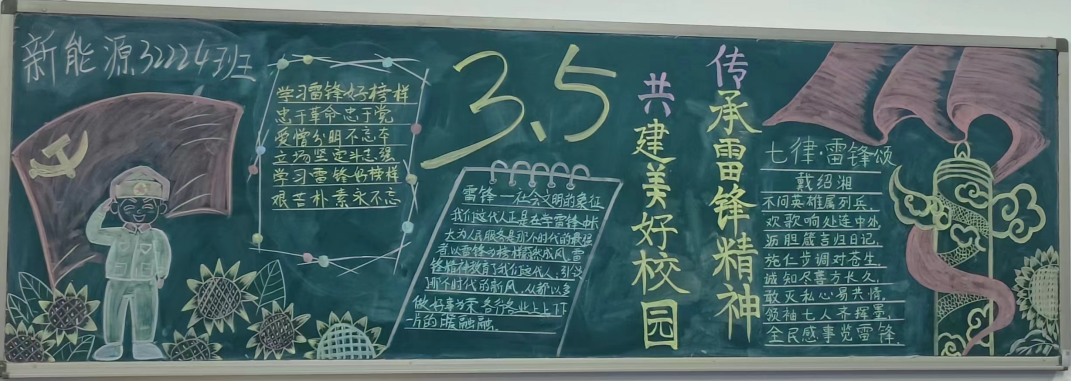 新能源32224班
学习雷锋好榜样
忠于革命忠于党
爱憎分明不忘本
立场坚定斗志强
学习雷锋好榜样
艰苦朴素永不忘
3、5
雷锋——社会文明的象征
我们这代人正是在学雷锋中长
大为人民服务是那个时代的最强
者以雷锋为榜样蔚然成风，雷
锋精神教育了我们这代人，引领
那个时代的新风，从都以多
做好事为荣各行各业上上下下
片的暖融融
共建美好校园
传承雷锋精神
七律·雷锋颂
戴绍湘
不问英雄属列兵，
欢歌响处连中外
沥胆箴言归日记，
施仁步调对苍生
诚知尽善方长久，
敢灭私心易共情，
领袖七人齐挥墨，
全民感事览雷锋，